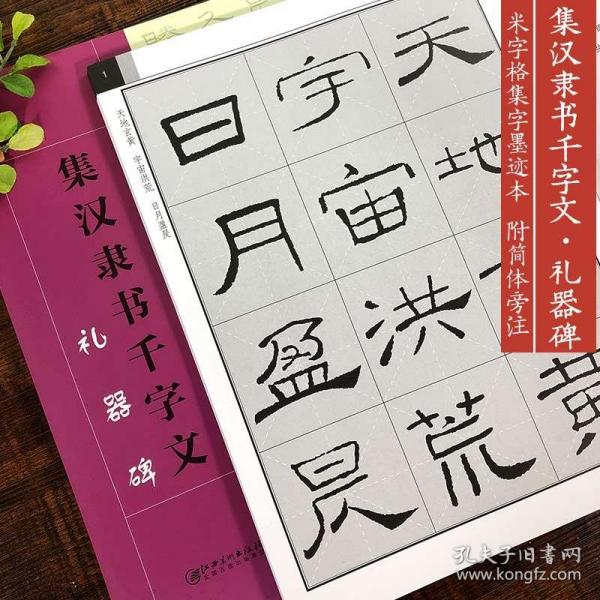 集汉隶书千字文·礼器碑
米字格集字墨迹本 附简体旁注
集汉隶书千字文
礼器碑
江西美术出版社
1
天地玄黄 宇宙洪荒 日月盈昃
天地
黄
宇宙洪荒
日月盈昃
孔夫子旧书网
www.kongfz.com